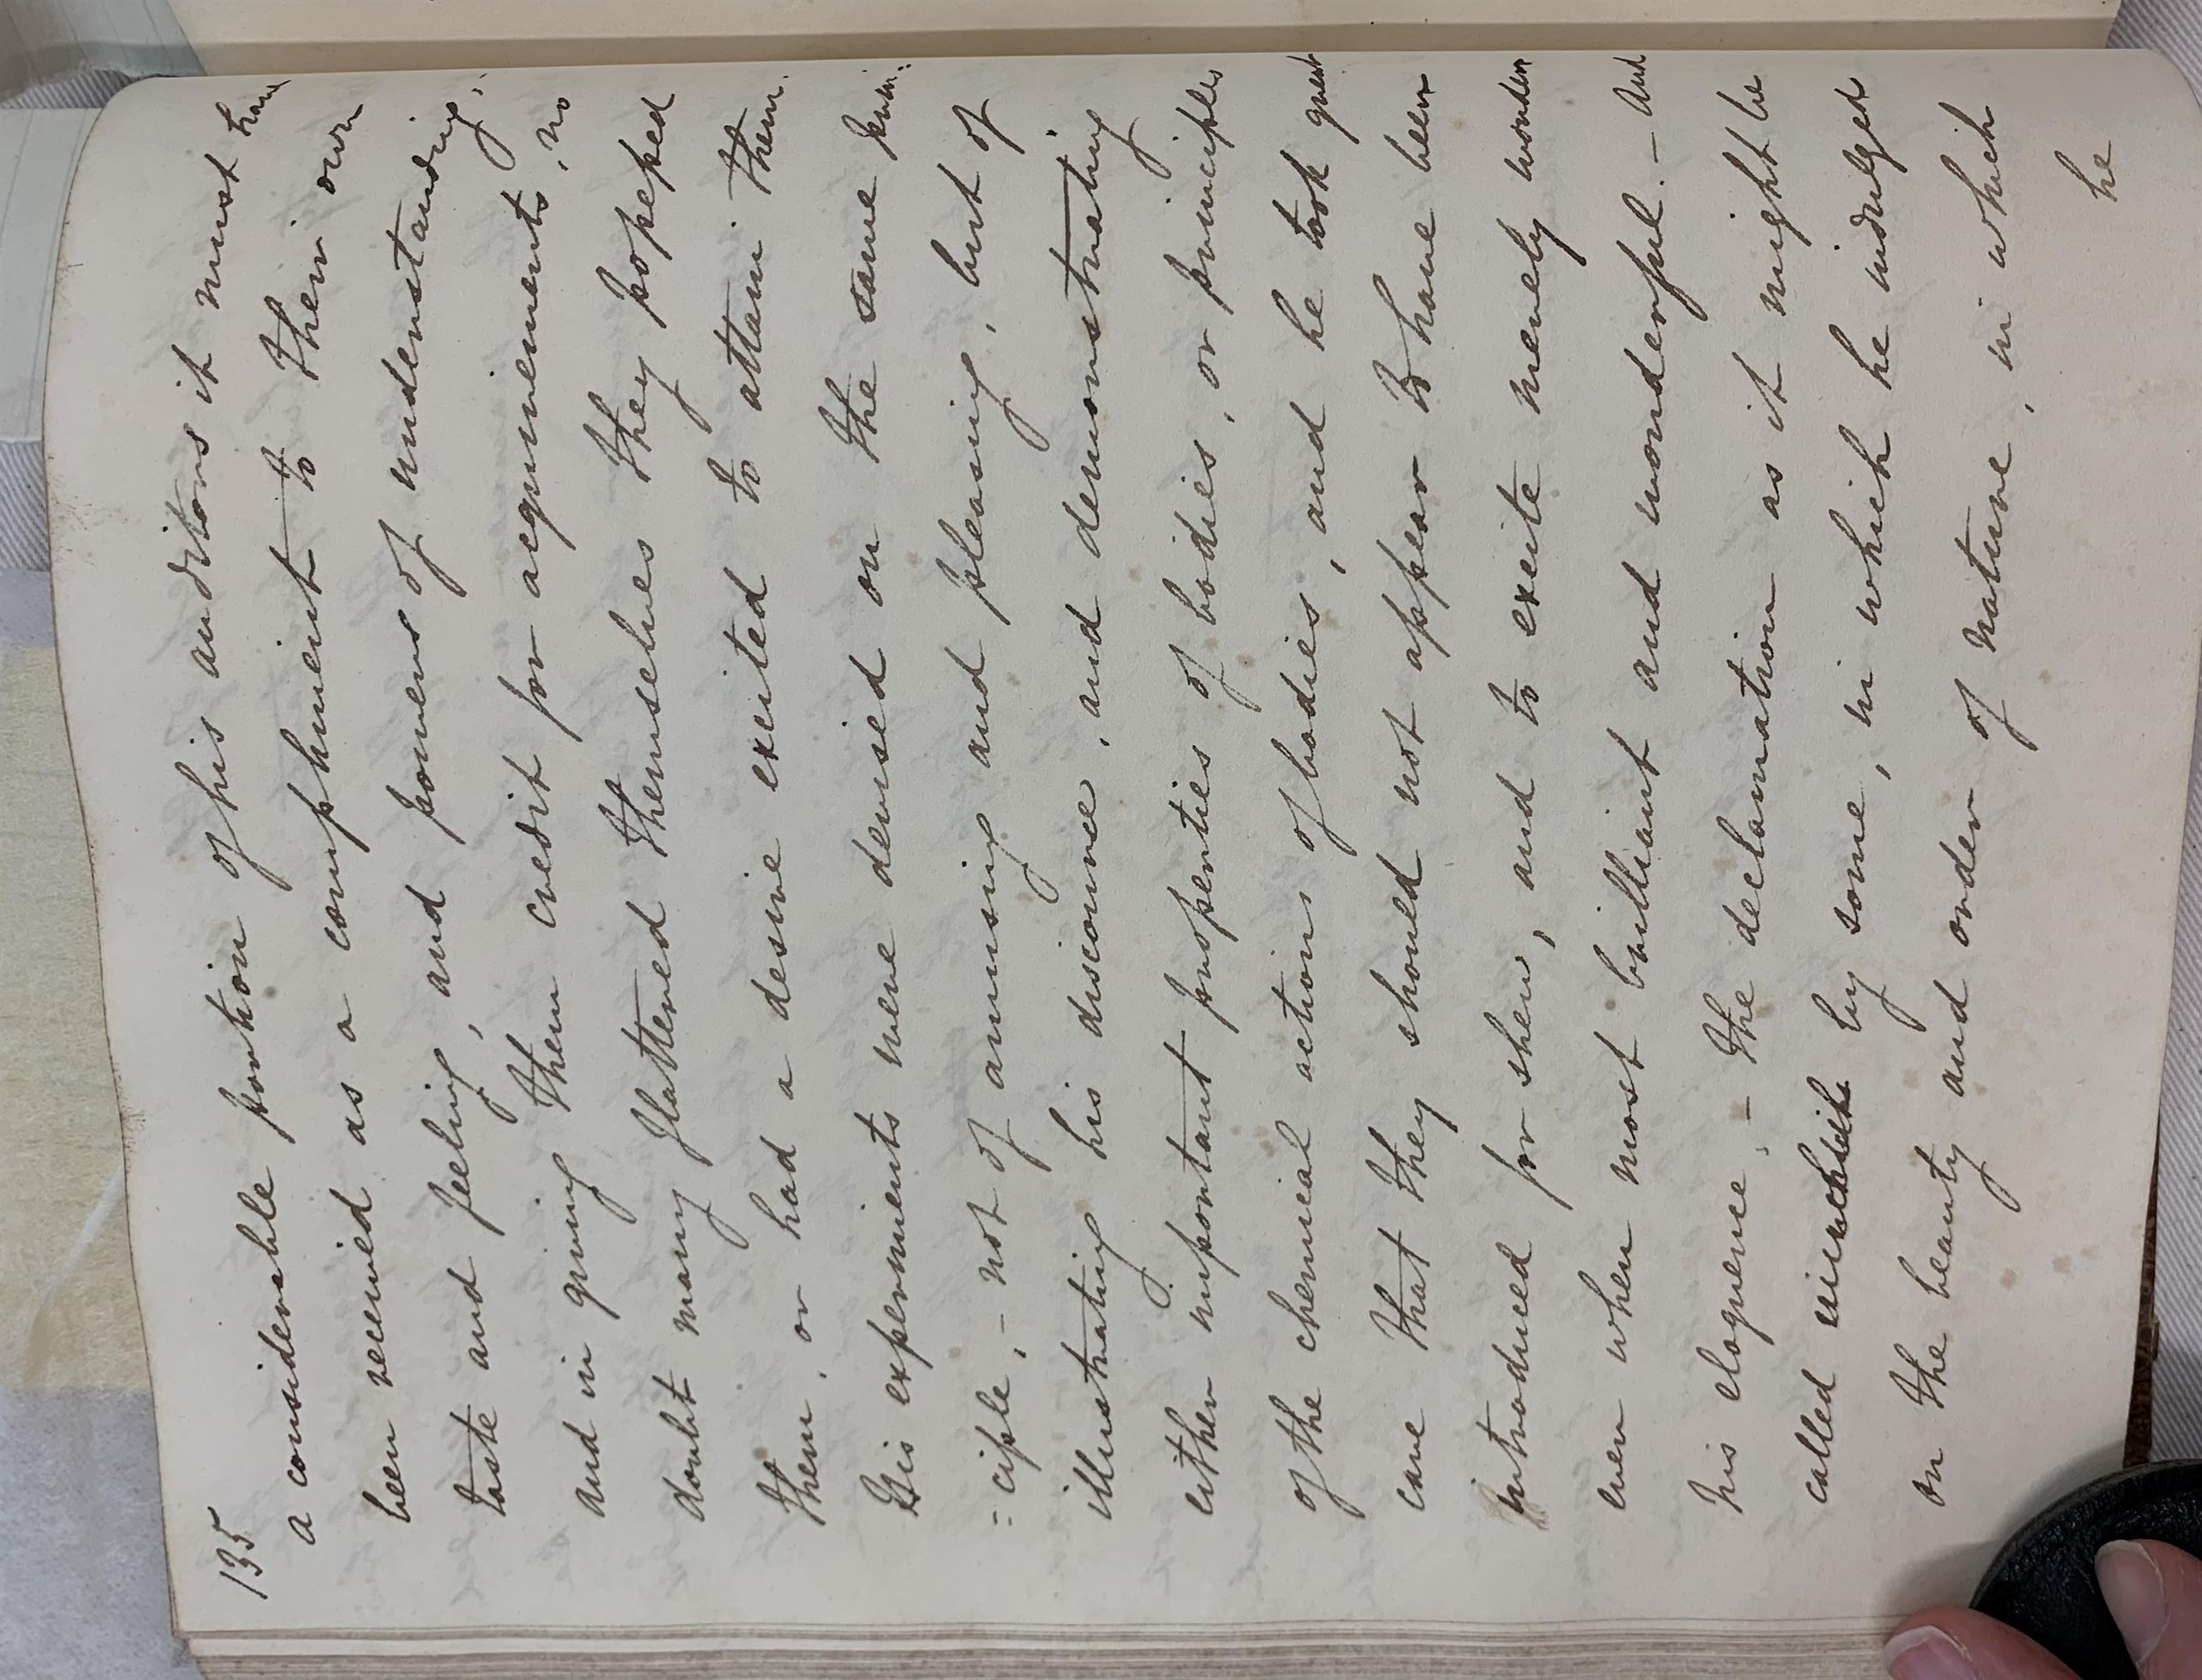 135
a considerable portion of his auditors it must have
been received as a compliment to their own
taste and feeling, and powers of understanding;
and in giving them credit for acquirements, no
doubt many flattered themselves they posessed
them, or had a desire excited to attain them.
His experiments were devised on the same prin:
=ciple, – not of amusing and pleasing, but of
illustrating his discourse, and demonstrating
either important properties of bodies, or principles
of the chemical actions of bodies, and he took great
care that they should not appear to have been
introduced for shew, and to excite merely wonder
even when most brilliant and wonderful. – And
his eloquence, – the declamation as it might be
called by some, in which he indulged
on the beauty and order of nature, in which
he